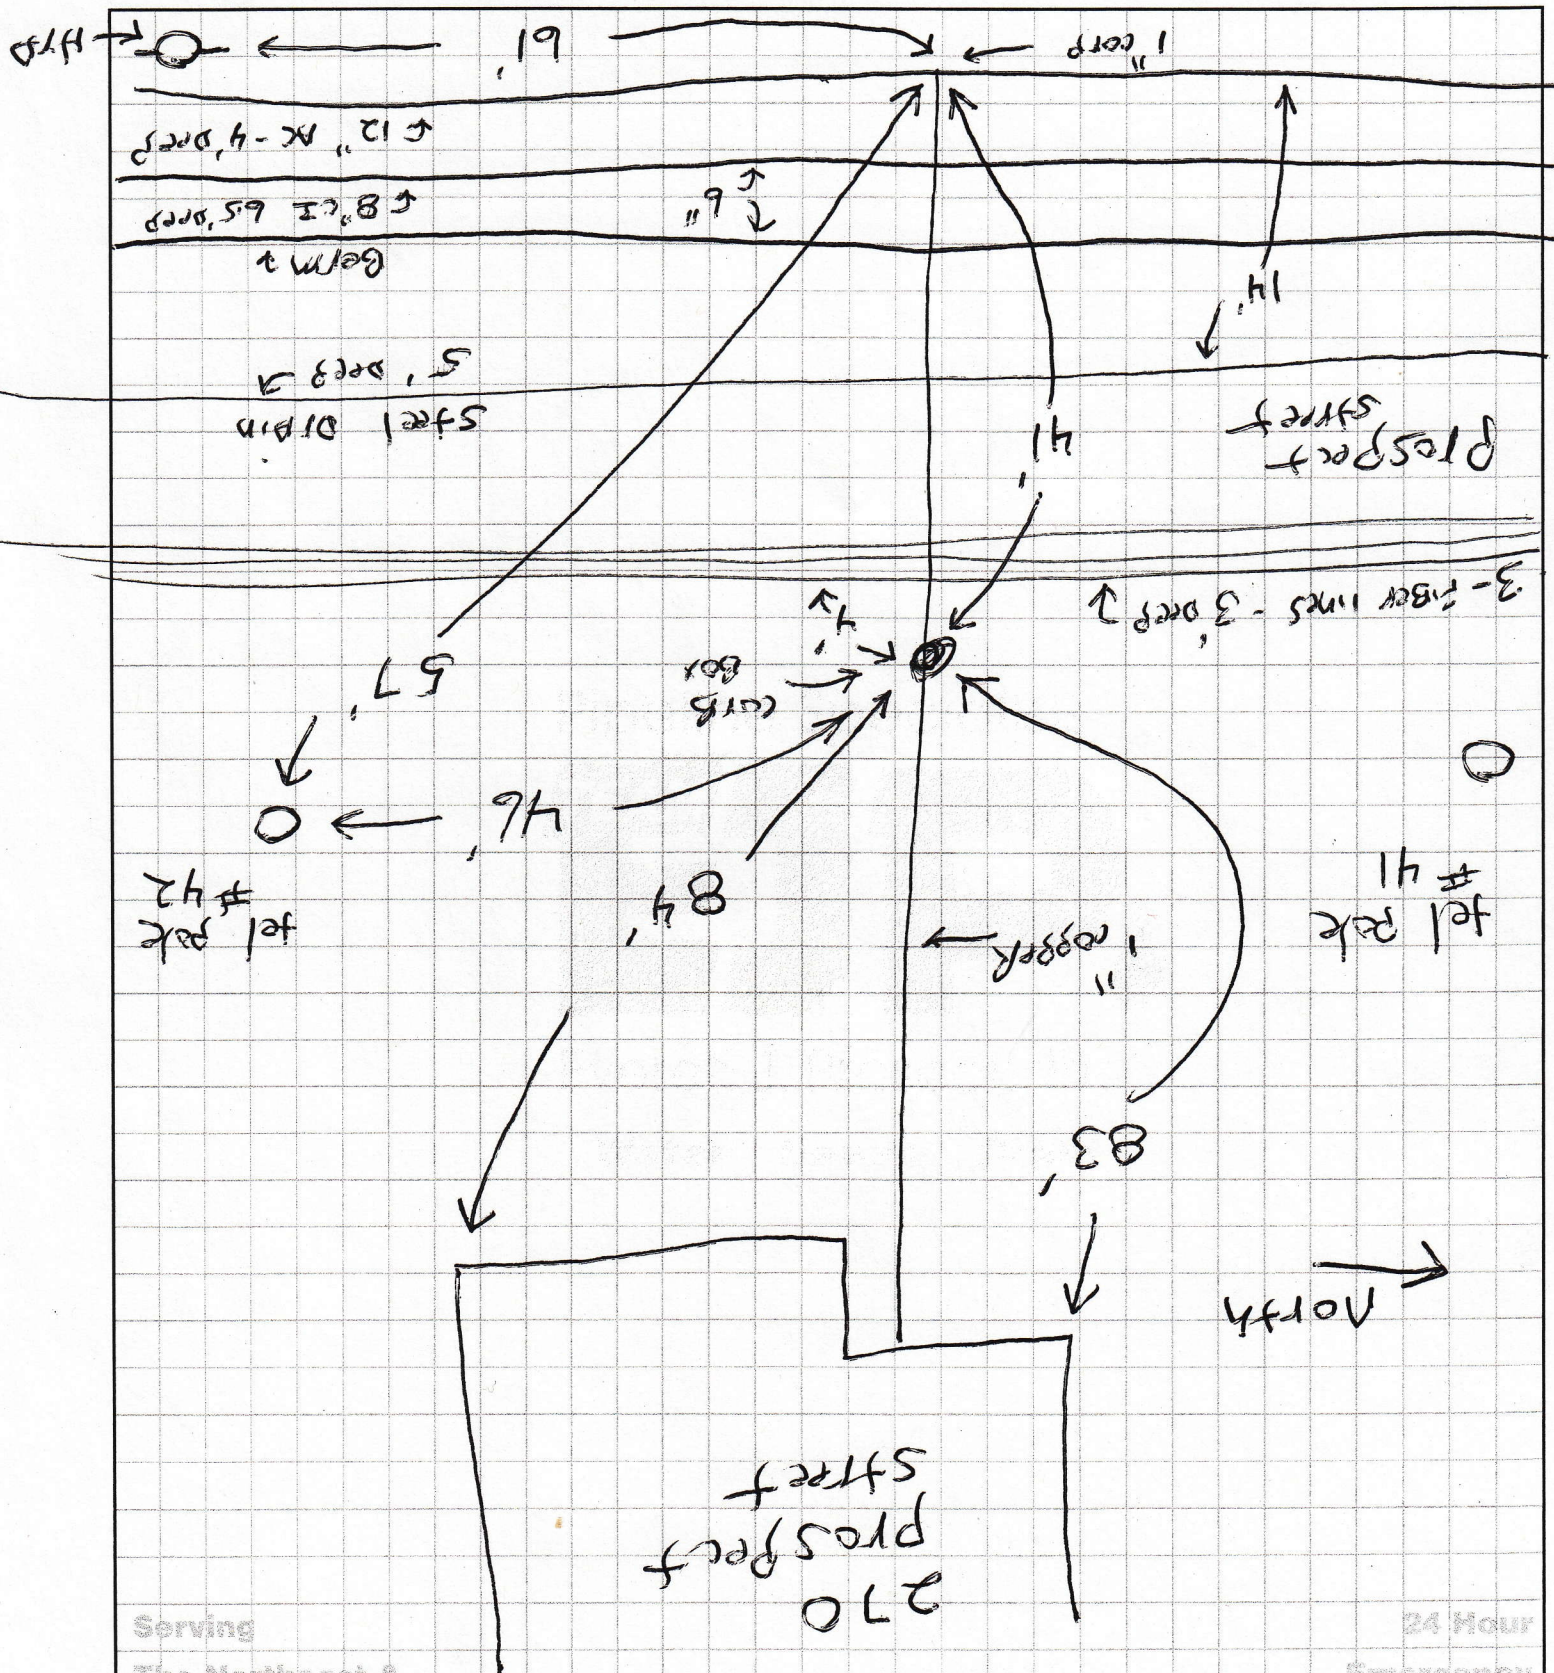 270
Prospect
Street
North
83'
1" copper
84'
tel pole
# 41
tel pole
# 42
46'
57'
Curb
Box
4'
3- Fiber lines - 3' Deep
41'
Prospect
Street
Steel Drain
5' Deep
14'
Berm
6"
8" CI 6.5' Deep
12" AC - 4' Deep
1" corp
61'
HYD
Serving
24 Hour